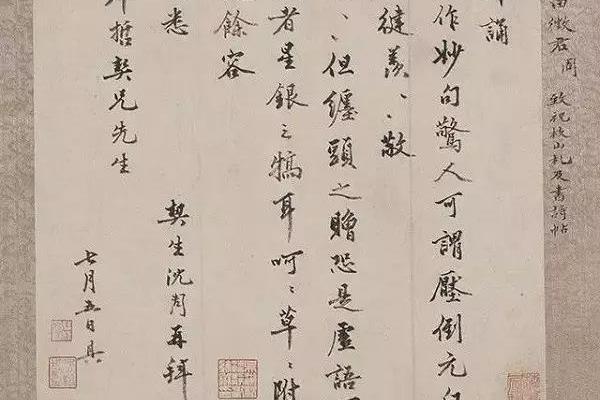 田徵君周 致祝枝山札及書詩帖
誦
作妙句驚人可謂壓倒元白
健羨、、敬
、、但纏頭之贈恐是虛語
者星銀之犒耳呵、、草、、附
餘容
悉
哲契兄先生
契生沈周再拜
七月五日具